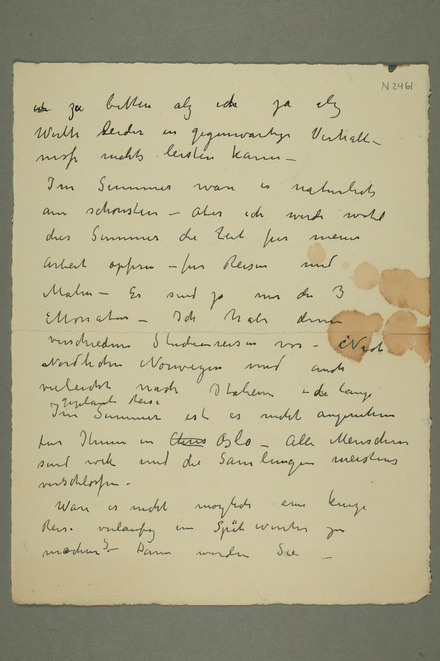 N 2461
zu bitten als ich ja als
Wirth leider in gegenwartige Verhalt-
niss nichts leisten kann –
Im Sommer ware es naturlich
am schonsten – aber ich werde wohl
dies Sommer die Zeit fur meine
Arbeit opfern – fur Reisen und
Malen – Es sind ja nur die 3
Monaten – Ich habe
verschiedene Studienreisen vor – Nach
Nordlichen Norwegen und auch
vieleicht nach Italien – die lang
geplante Reise
Im Sommer ist es nicht angenehm
fur Ihnen in Oslo – Alle Menschen
sind weck und die Samlungen meistens
verschlossen –
Ware es nicht moglich eine kurze
Reise vorlaufig im Spät Winter zu
machen? – Dann werden Sie –